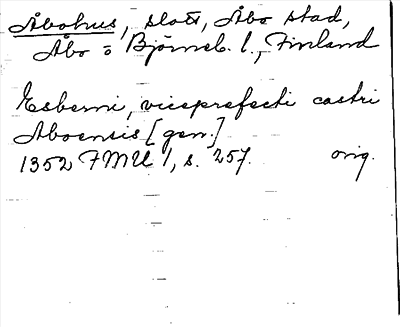 Åbohus, slott, Åbo stad,
Åbo o Björneb. l., Finland
Esberni, viceprefecti castri
Aboensis [gen.]
1352 FMU 1, s. 257. orig.